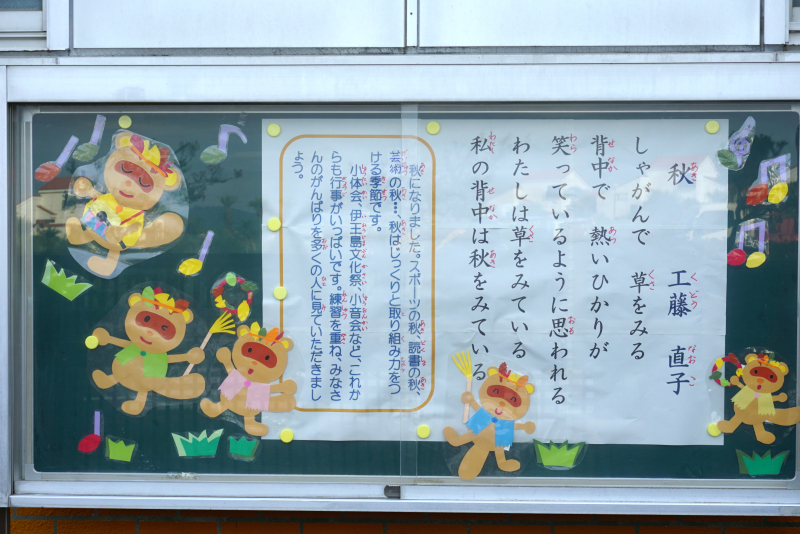 秋　工藤　直子
しゃがんで　草をみる
背中で　熱いひかりが
笑っているように思われる
わたしは草をみている
私の背中は秋をみている
秋になりました。スポーツの秋、読書の秋、
芸術の秋…、秋は、じっくりと取り組み力をつ
ける季節です。
小体会、伊王島文化祭、小音会など、これか
らも行事がいっぱいです。練習を重ね、みなさ
んのがんばりを多くの人に見ていただきまし
ょう。